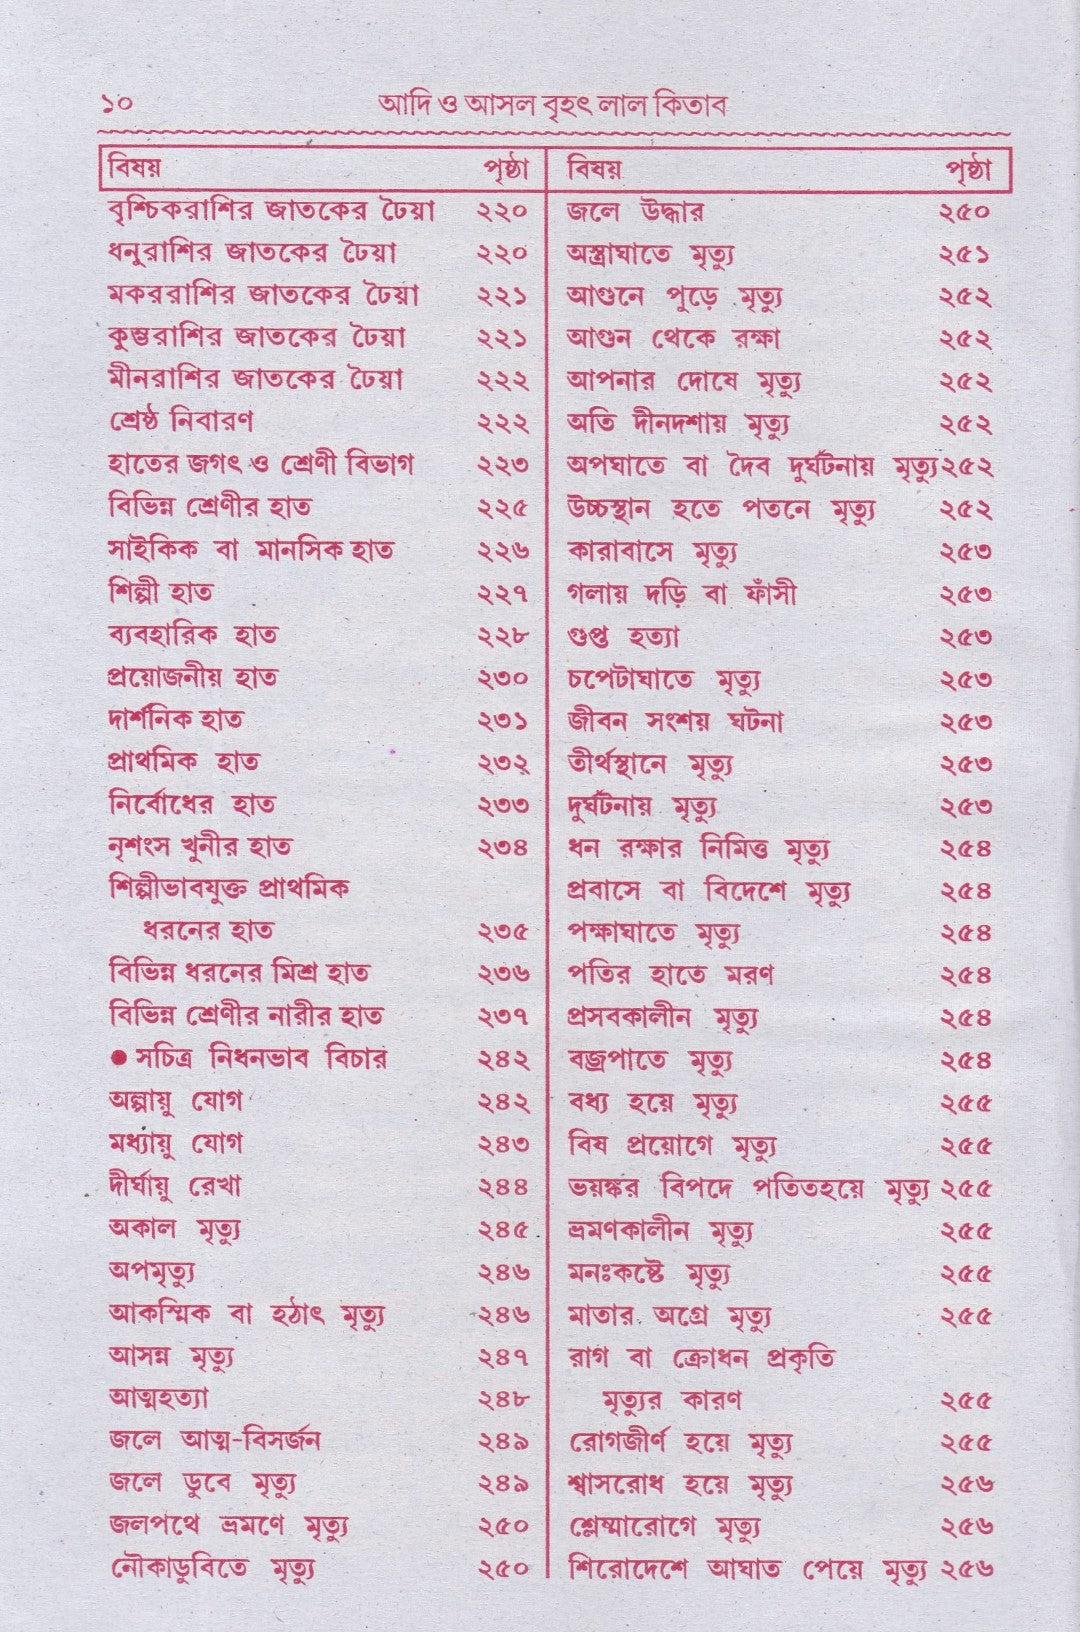 ১০ আদি ও আসল বৃহৎ লাল কিতাব
বিষয় পৃষ্ঠা
বৃশ্চিকরাশির জাতকের ঢৈয়া ২২০
ধনুরাশির জাতকের ঢৈয়া ২২০
মকররাশির জাতকের ঢৈয়া ২২১
কুম্ভরাশির জাতকের ঢৈয়া ২২১
মীনরাশির জাতকের ঢৈয়া ২২২
শ্রেষ্ঠ নিবারণ ২২২
হাতের জগৎ ও শ্রেণী বিভাগ ২২৩
বিভিন্ন শ্রেণীর হাত ২২৫
সাইকিক বা মানসিক হাত ২২৬
শিল্পী হাত ২২৭
ব্যবহারিক হাত ২২৮
প্রয়োজনীয় হাত ২৩০
দার্শনিক হাত ২৩১
প্রাথমিক হাত ২৩২
নির্বোধের হাত ২৩৩
নৃশংস খুনীর হাত ২৩৪
শিল্পীভাবযুক্ত প্রাথমিক
ধরনের হাত ২৩৫
বিভিন্ন ধরনের মিশ্র হাত ২৩৬
বিভিন্ন শ্রেণীর নারীর হাত ২৩৭
● সচিত্র নিধনভাব বিচার ২৪২
অল্পায়ু যোগ ২৪২
মধ্যায়ু যোগ ২৪৩
দীর্ঘায়ু রেখা ২৪৪
অকাল মৃত্যু ২৪৫
অপমৃত্যু ২৪৬
আকস্মিক বা হঠাৎ মৃত্যু ২৪৬
আসন্ন মৃত্যু ২৪৭
আত্মহত্যা ২৪৮
জলে আত্ম-বিসর্জন ২৪৯
জলে ডুবে মৃত্যু ২৪৯
জলপথে ভ্রমণে মৃত্যু ২৫০
নৌকাডুবিতে মৃত্যু ২৫০
বিষয় পৃষ্ঠা
জলে উদ্ধার ২৫০
অস্ত্রাঘাতে মৃত্যু ২৫১
আগুনে পুড়ে মৃত্যু ২৫২
আগুন থেকে রক্ষা ২৫২
আপনার দোষে মৃত্যু ২৫২
অতি দীনদশায় মৃত্যু ২৫২
অপঘাতে বা দৈব দুর্ঘটনায় মৃত্যু ২৫২
উচ্চস্থান হতে পতনে মৃত্যু ২৫২
কারাবাসে মৃত্যু ২৫৩
গলায় দড়ি বা ফাঁসী ২৫৩
গুপ্ত হত্যা ২৫৩
চপেটাঘাতে মৃত্যু ২৫৩
জীবন সংশয় ঘটনা ২৫৩
তীর্থস্থানে মৃত্যু ২৫৩
দুর্ঘটনায় মৃত্যু ২৫৩
ধন রক্ষার নিমিত্ত মৃত্যু ২৫৪
প্রবাসে বা বিদেশে মৃত্যু ২৫৪
পক্ষাঘাতে মৃত্যু ২৫৪
পতির হাতে মরণ ২৫৪
প্রসবকালীন মৃত্যু ২৫৪
বজ্রপাতে মৃত্যু ২৫৪
বধ্য হয়ে মৃত্যু ২৫৫
বিষ প্রয়োগে মৃত্যু ২৫৫
ভয়ঙ্কর বিপদে পতিতহয়ে মৃত্যু ২৫৫
ভ্রমণকালীন মৃত্যু ২৫৫
মনঃকষ্টে মৃত্যু ২৫৫
মাতার অগ্রে মৃত্যু ২৫৫
রাগ বা ক্রোধন প্রকৃতি
মৃত্যুর কারণ ২৫৫
রোগজীর্ণ হয়ে মৃত্যু ২৫৫
শ্বাসরোধ হয়ে মৃত্যু ২৫৬
শ্লেষ্মারোগে মৃত্যু ২৫৬
শিরোদেশে আঘাত পেয়ে মৃত্যু ২৫৬